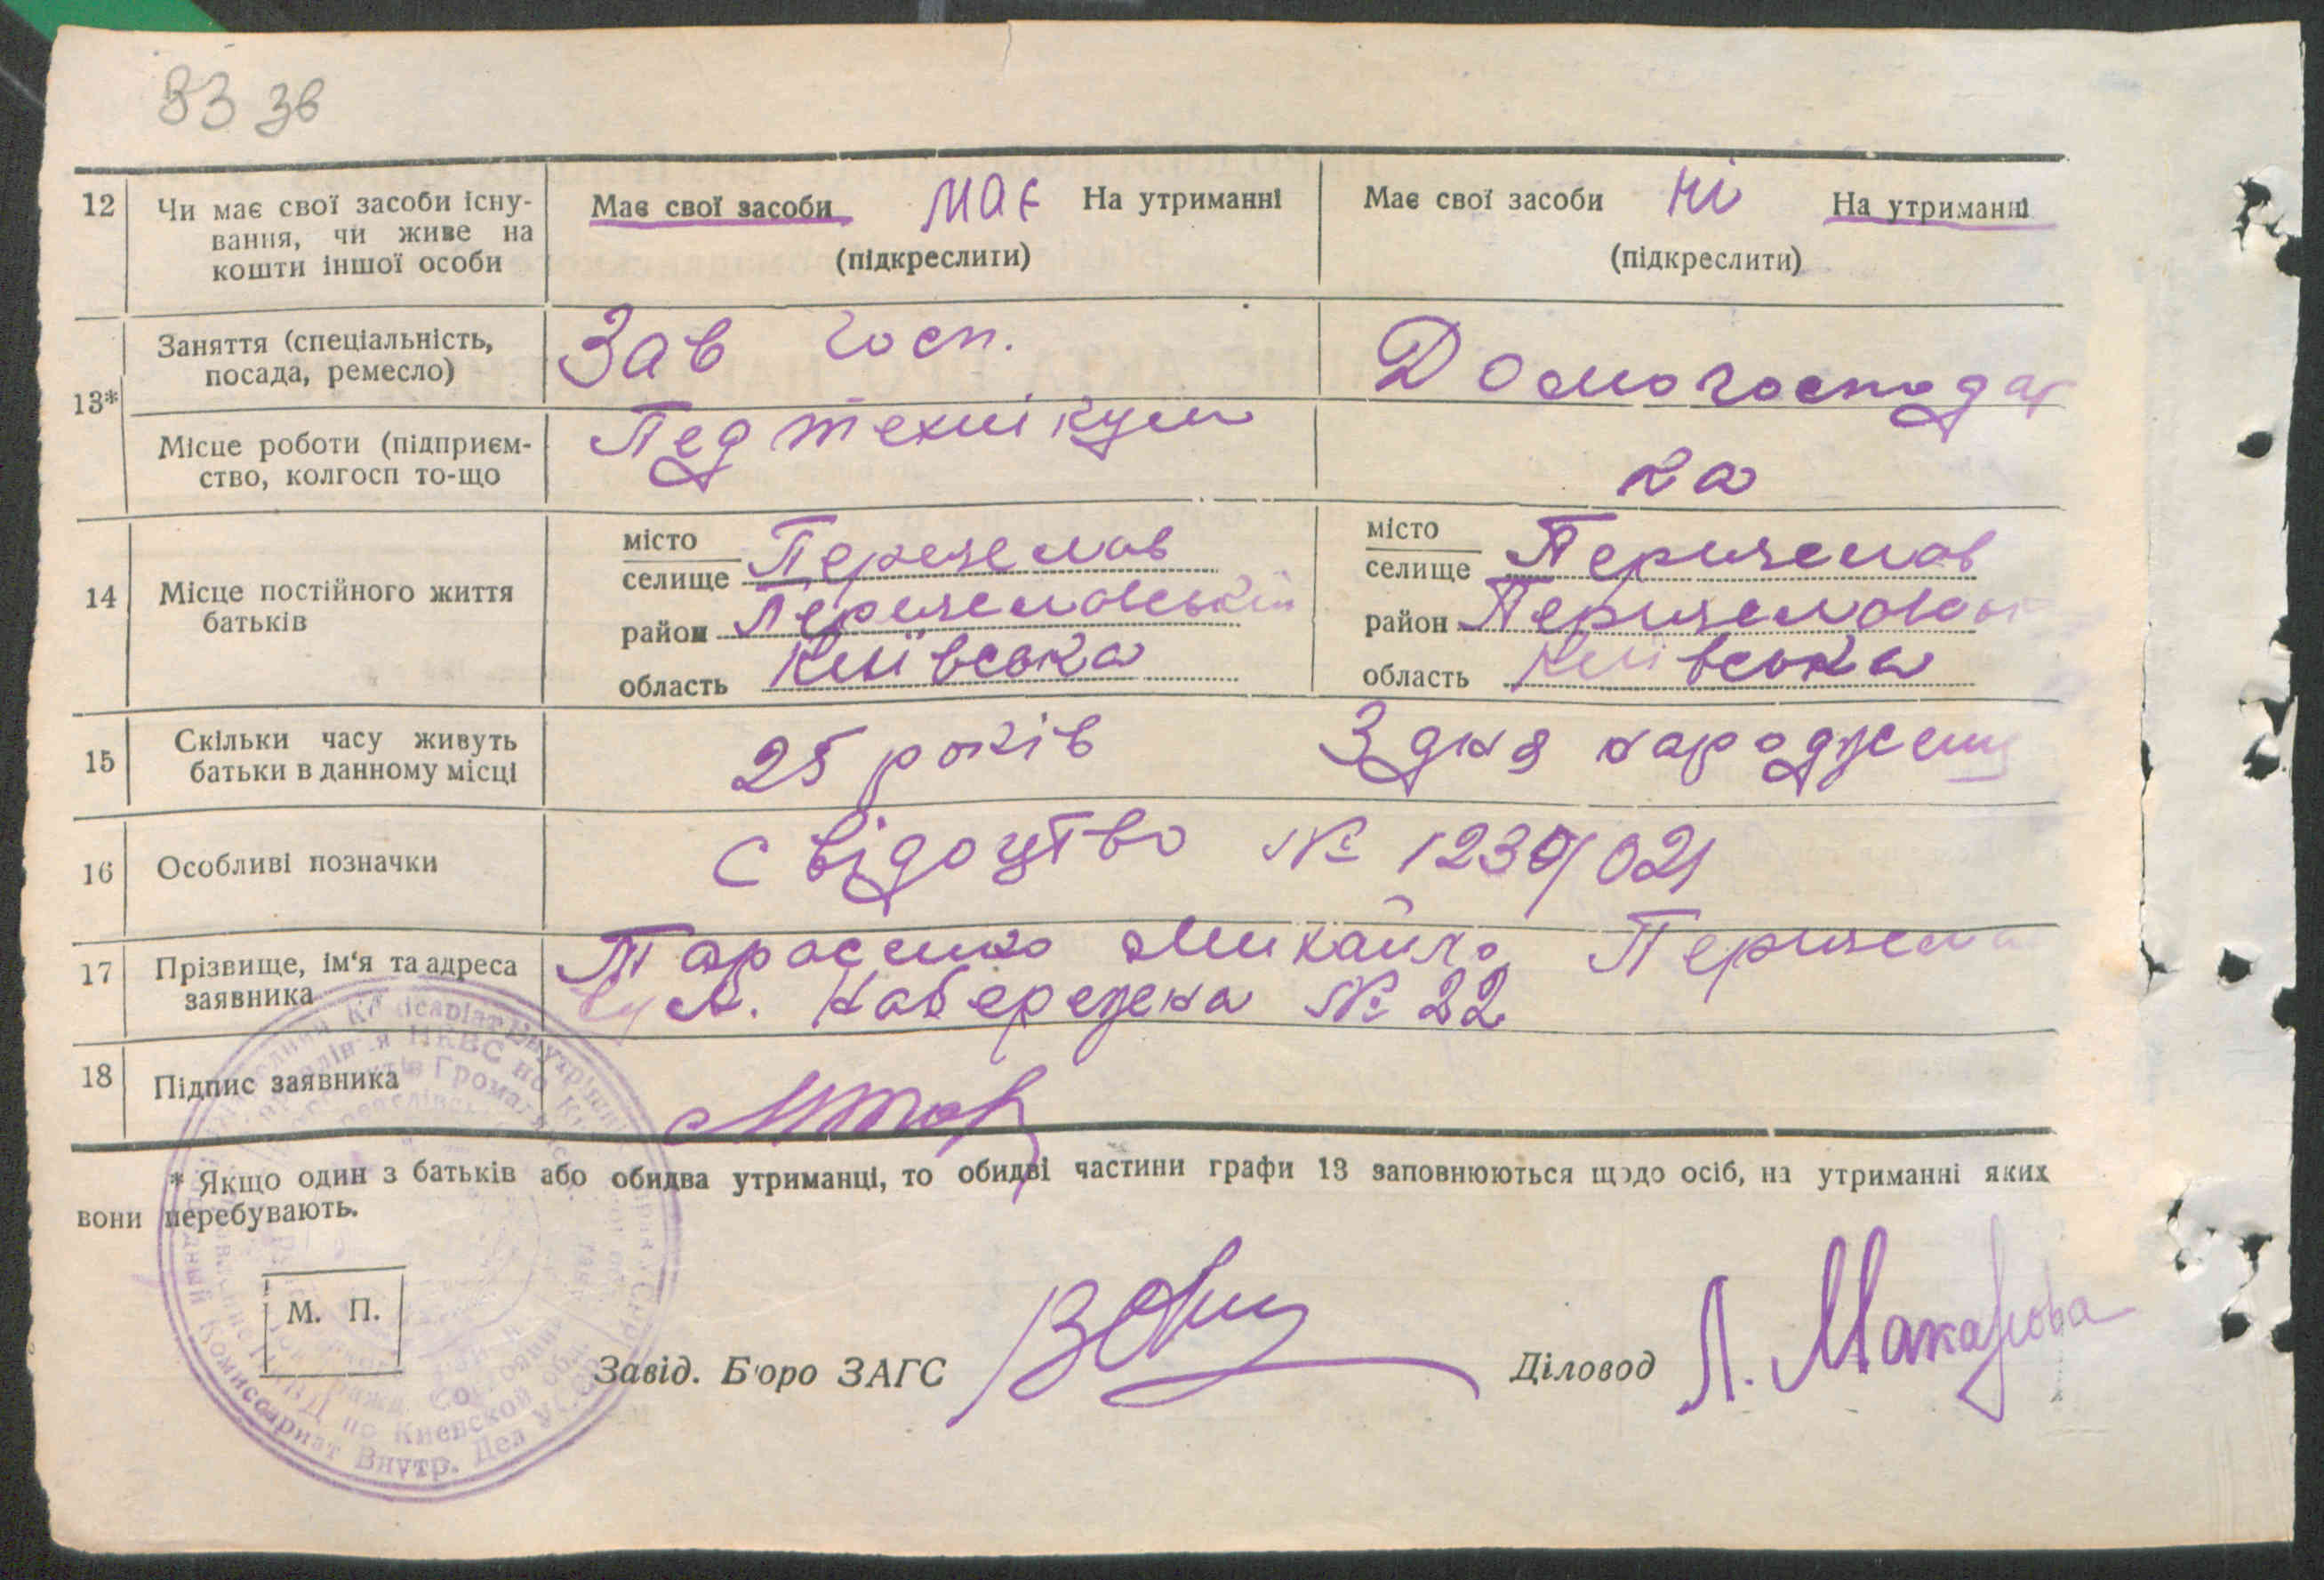 83 зв
12 Чи має свої засоби існу-
вання, чи живе на
кошти іншої особи
Має свої засоби має На утриманні
(підкреслити)
Має свої засоби ні На утриманні
(підкреслити)
13*
Заняття (спеціальність,
посада, ремесло)
Зав госп.
Домогосподар
ка
Місце роботи (підприєм-
ство, колгосп то-що
Педтехнікум
14 Місце постійного життя
батьків
місто
селище Переяслав
район Переяславський
область Київська
місто
селище Переяслав
район
область Київська
15 Скільки часу живуть
батьки в данному місці
25 років З дня народжения
16 Особливі позначки
Свідоцтво № 1230/021
17 Прізвище, ім'я та адреса
заявника
Тарасенко Михайло
вул. Набережна № 22
18 Підпис заявника
* Якщо один з батьків або обидва утриманці, то обидві частини графи 13 заповнюються щодо осіб, на утриманні яких
вони перебувають.
М. П.
Завід. Б'юро ЗАГС
Діловод Л. Макарова
Комиссариат Внутр. Дел УССР
по Киевской обл.